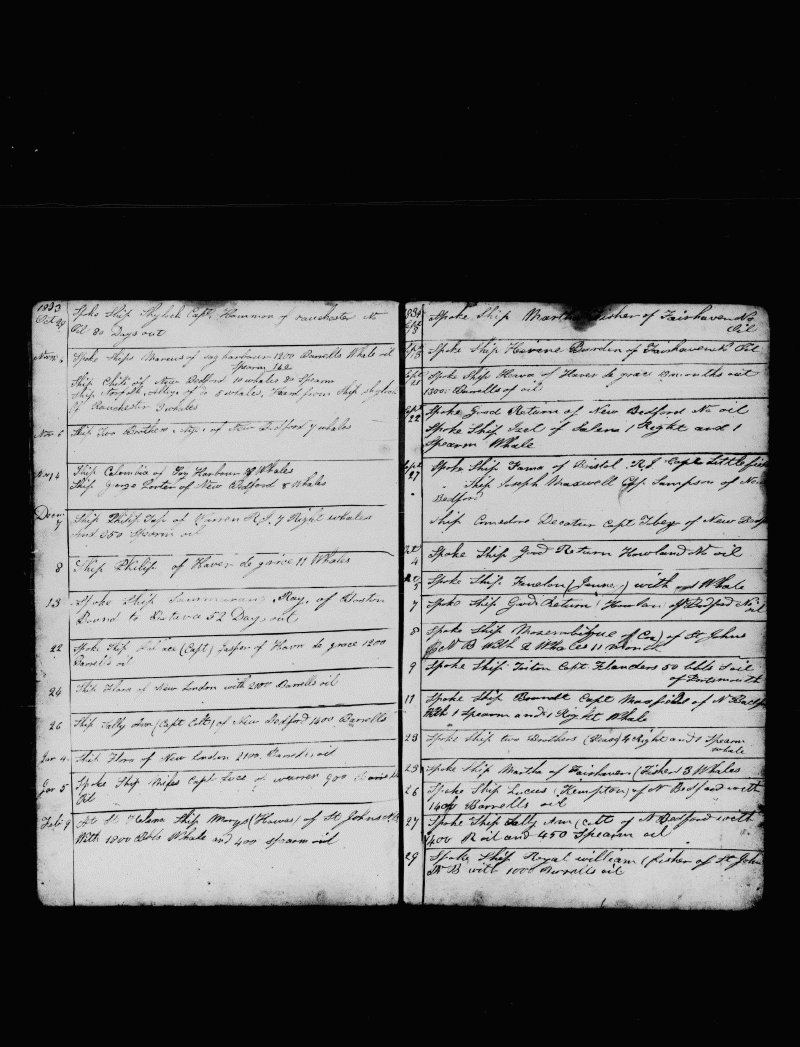 1833
Oct 29 Spoke Ship Shylock Capt Hammon of Ranchester No
Oil 80 Days out
Nov Spoke Ships Marcus of Sag harbour 1200 Barrells Whale oil
Spearm
Ship of New Bedford 10 whales 80 Spearm
Ship of Do 5 whales, Heard from Ship Shylock
of Ranchester 3 whales
Nov 5 Ship Two Brothers of New Bedford 7 whales
Nov 14 Ship Colombia of Sag Harbour 8 Whales
Ship George Porter of New Bedford 8 Whales
Decm 7 Ship Philip Tap of Warren R.I. 7 Right whales
and 250 Spearm oil
8 Ship Philip of Haver de grace 11 Whales
13 Spoke Ship Ray, of Boston
Bound to Batava 52 Days out
22 Spoke Ship (Capt) of Havre de grace 1200
Barrels oil
24 Ship Flora of New London with 2100 Barrells oil
26 Ship Sally Ann (Capt Colt) of New Bedford 1400 Barrells
Jan 4 Ship Flora of New London 2100 Barrells oil
Jan 5 Spoke Ship Miles Capt Luce of warren 900 Barrells
Oil
Feb 9 At St Helena Ship Margs (Hawes) of St Johns N B
With 1800 Bbls Whale and 400 spearm oil
Spoke Ship Martha Fisher of Fairhaven No
Oil
Spoke Ship Burden of Fairhaven No Oil
Spoke Ship of Haver de grace 8 months out
1300 Barrells of oil
Sept 22 Spoke Good Return of New Bedford No oil
Spoke Ship of Salem 1 Right and 1
Spearm Whale
Sept 27 Spoke Ship Fama of Bristol R.I. Capt Littlefield
" Ship Joseph Maxwell Capt Sampson of New
Bedford
" Ship Comodore Decatur Capt of New Bedf
Oct 4 Spoke Ship Good Return Howland No oil
5 Spoke Ship Fenelon with Whale
7 Spoke Ship Good Return Howlan of Bedford No
oil
8 Spoke Ship Mozembique of St Johns
N B With 2 Whales 11 Month
9 Spoke Ship Triton Capt Flanders 50 bbls S oil
of Portsmouth
11 Spoke Ship Capt Maxfield of N Bedf
With 1 Spearm and 1 Right Whale
23 Spoke Ship two Brothers 4 Right and 1 Spearm
whale
25 Spoke Ship Martha of Fairhaven (Fisher 3 Whales
26 Spoke Ship Lucus (Hempton) of N Bedford with
1400 Barrells oil
27 Spoke Ship Sally Ann (Colt of N Bedford with
400 R oil and 450 Spearm oil
29 Spoke Ship Royal william (fisher of St John
N B with 1000 Barrells oil